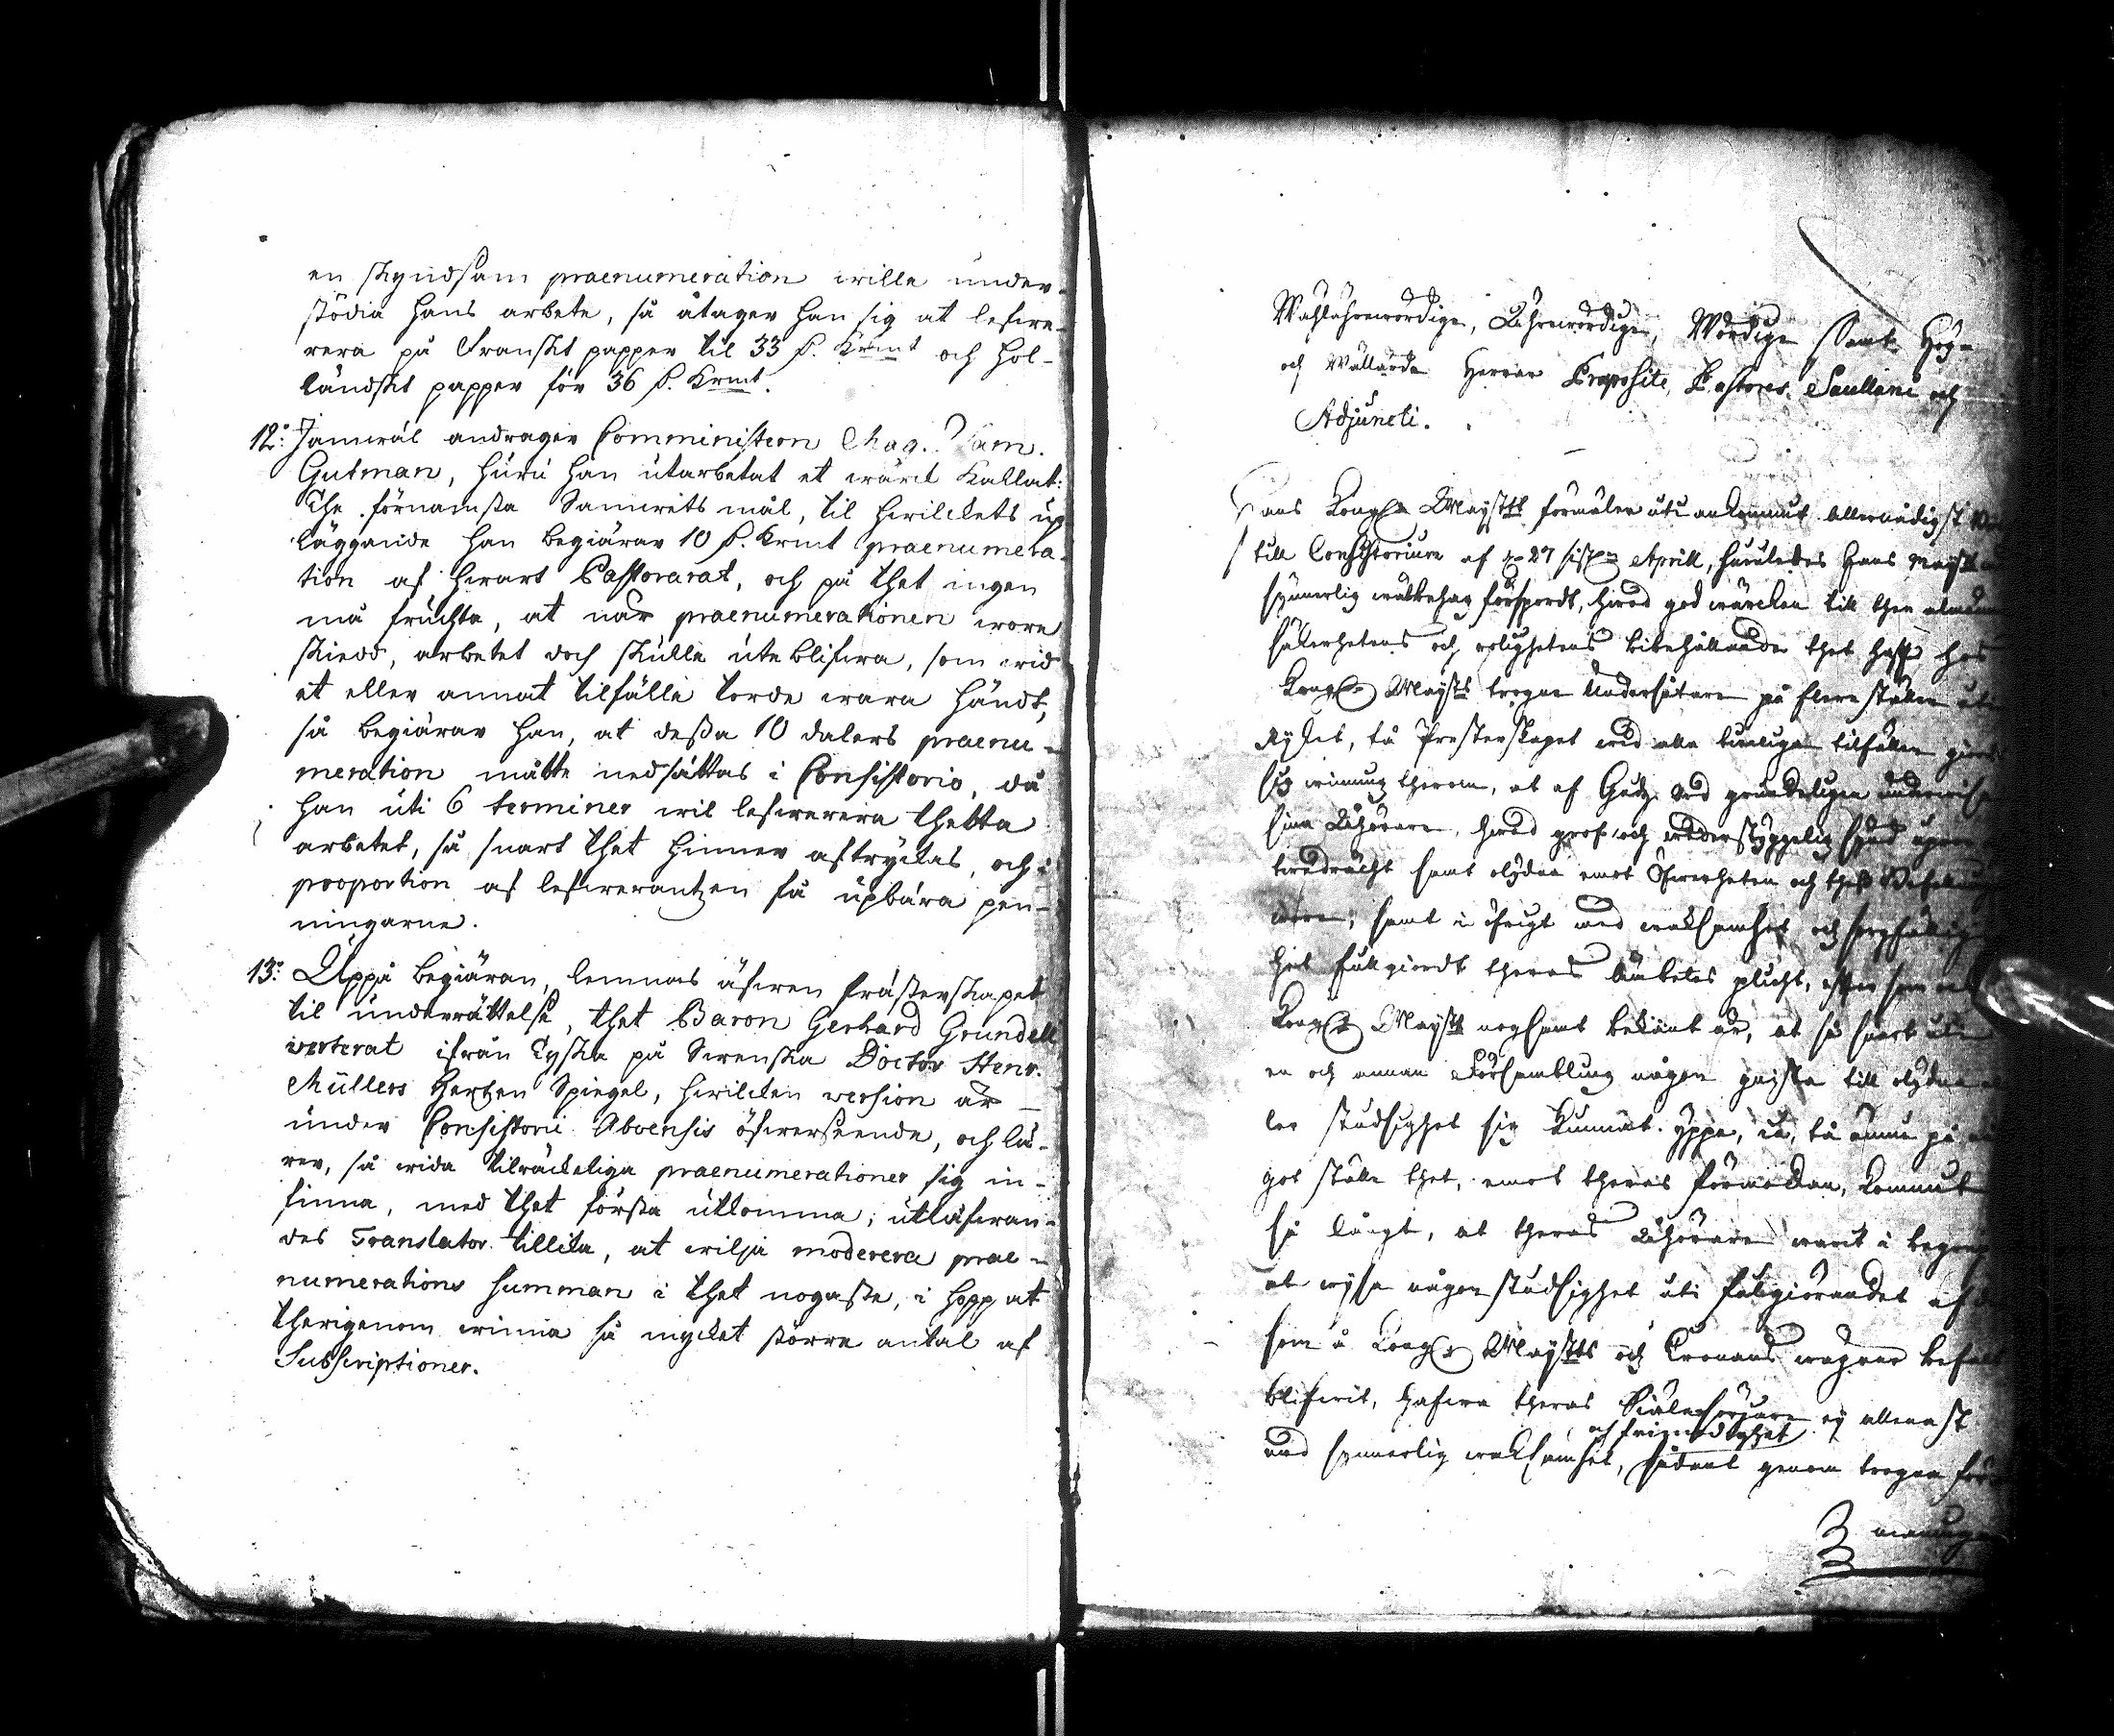 en skyndsam praenumeration wille under-
stödia hans arbete, så åtager han sig at lefwe-
rera på Franskt papper til 33 f. Krmt och hol-
ländskt papper för 36 f. Krmt.
12:o Jämwäl andrager Comministern Mag. Sam.
Gutman, huru han utarbetat et wärck kallat:
The förnämsta Samwets mål, til hwilckets up
läggande han begiärar 10 f. Krmt praenumera-
tion af hwart Pastorarat, och på thet ingen
må fruchta, at når praenumerationen wore
skiedd, arbetet doch skulle uteblifwa, som wid
et eller annat tilfälle torde wara händt,
så begiärar han, at dessa 10 dalers praenu-
meration måtte nedsättas i Consistorio, då
han uti 6 terminer wil lefwerera thetta
arbetet, så snart thet hinner aftryckas, och i
proportion af lefwerantzen få upbära pen-
ningarne.
13:o Uppå begiäran, lemnas äfwen Prästerskapet
til underrättelse, thet Baron Gerhard Grundell
verterat ifrån Tyska på Swenska Doctor Henr.
Müllers Hertzen Spiegel, hwilcken version är
under Consistorii Aboensis öfwerseende, och lä-
rer, så wida tilräckeliga praenumerationer sig in-
finna, med thet första utkomma; utläfwan-
des Translator tillika, at wilja moderera prae-
numerations summan i thet nogaste, i hopp at
therigenom winna så mycket större antal af
Subscriptioner.
Wählährewördige, Ährewördige, Wördige Samt Höge
och Wällärde Herrar Præpositi, Pastores, Sacellani och
Adjuncti.
Hans Kongl. Maÿsttt förmäler uti ankommit Allernådigst
till Consistorium af d. 27 sistl. Aprill, huruledes Hans Maystt
synnerlig wälbehag försport, hwad god wärckan till then almänna
säkerhetens och roligshetens bibehållande thet hafft hos
Kongl. Maysts trogne Undersåtare på flere ställen uti
Ryket, tå Presterskapet wid alla tienliga tilfällen giordt
sig winnung therom, at af Gudz ord grundeligen underwisa
sina Åhörare, hwad grof och wederstyggelig synd upror
twedrächt samt olydna emot Öfwerheten och thess Befalningar
wore; samt i öfrigt med waksamhet och sorgfällig
het fullgiordt theras Ämbetes plicht, efter som
Kongl. Maystt nogsamt bekänt är, at så snart uti
en och annan Församblung någon gnista till olydna
ler studsighet sig kunnat yppa, ia, tå ännu på
got ställe thet, emot theras förmodan, kommit
så långt, at theras Åhörare warit i begrep
at wysa någon studsighet uti fulgiörandet af
som å Kongl. Maystts och Cronans wägnar befalt
blifwit, hafwa theras Siälasörjare ej allenast
och frimodighet
med synnerlig waksamhet, sådant genom trogna för
maninga